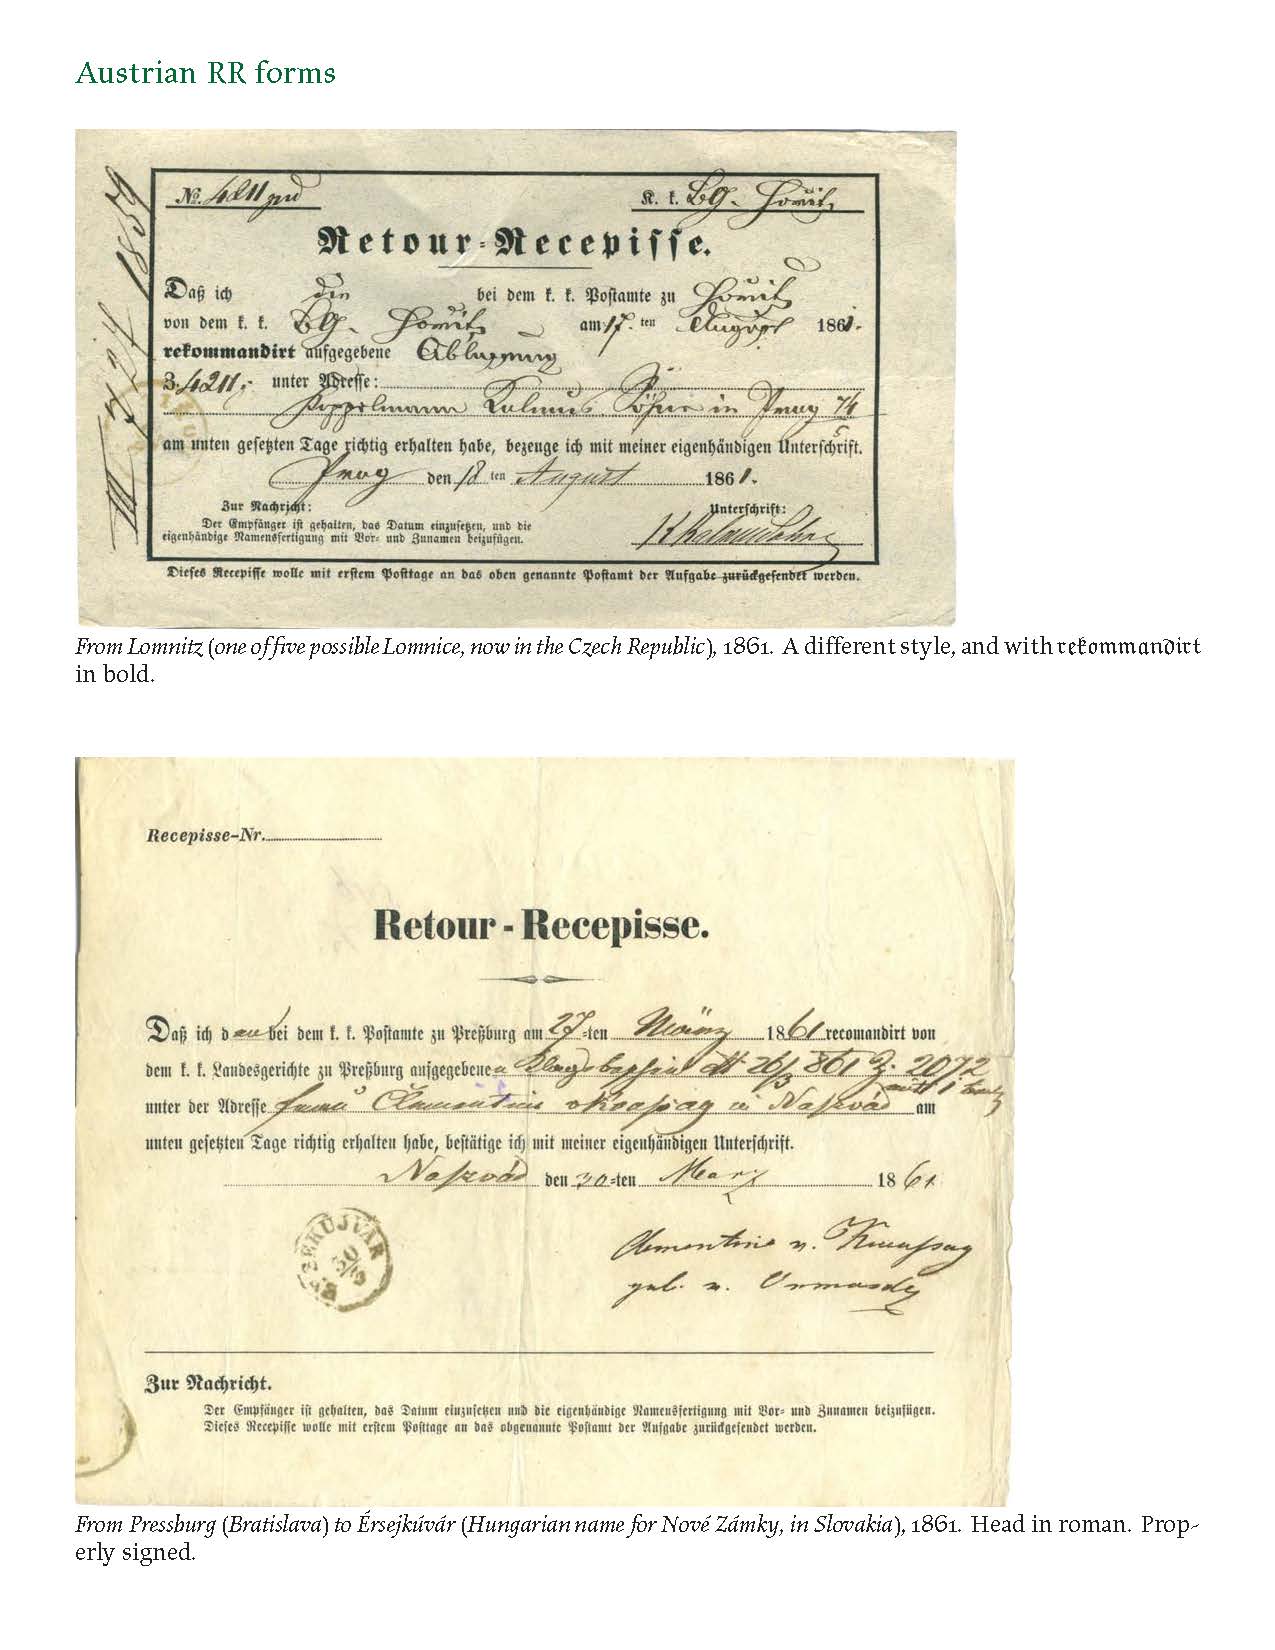 Austrian RR forms
No. 4211
K. k. BG. Hořitz
Retour-Recepisse.
Daß ich den bei dem k. k. Postamte zu Hořitz
von dem k. k. BG. Hořitz am 17. ten August 1861.
rekommandirt aufgegebene
Z. 4211. unter Adresse:
Koppelmann Kalmus Söhne in Prag
am unten gesetzten Tage richtig erhalten habe, bezeuge ich mit meiner eigenhändigen Unterschrift.
Prag den 18 ten August 1861.
Zur Nachricht:
Unterschrift:
Der Empfänger ist gehalten, das Datum einzusetzen, und die
eigenhändige Namensfertigung mit Vor- und Zunamen beizufügen.
Dieses Recepisse wolle mit erstem Posttage an das oben genannte Postamt der Aufgabe zurückgesendet werden.
From Lomnitz (one of five possible Lomnice, now in the Czech Republic), 1861. A different style, and with rekommandirt
in bold.
Recepisse-Nr.
Retour-Recepisse.
Daß ich den bei dem k. k. Postamte zu Preßburg am 27-ten März 1861 recomandirt von
dem k. k. Landesgerichte zu Preßburg aufgegebenen 26/3 861 Z. 2072
unter der Adresse Clementine in Naszvád am
unten gesetzten Tage richtig erhalten habe, bestätige ich mit meiner eigenhändigen Unterschrift.
Naszvád den 30-ten März 1861
ÉRSEKÚJVÁR
30/3
Clementine v.
geb. v.
Zur Nachricht.
Der Empfänger ist gehalten, das Datum einzusetzen und die eigenhändige Namensfertigung mit Vor- und Zunamen beizufügen.
Dieses Recepisse wolle mit erstem Posttage an das obgenannte Postamt der Aufgabe zurückgesendet werden.
From Pressburg (Bratislava) to Érsejkúvár (Hungarian name for Nové Zámky, in Slovakia), 1861. Head in roman. Prop-
erly signed.